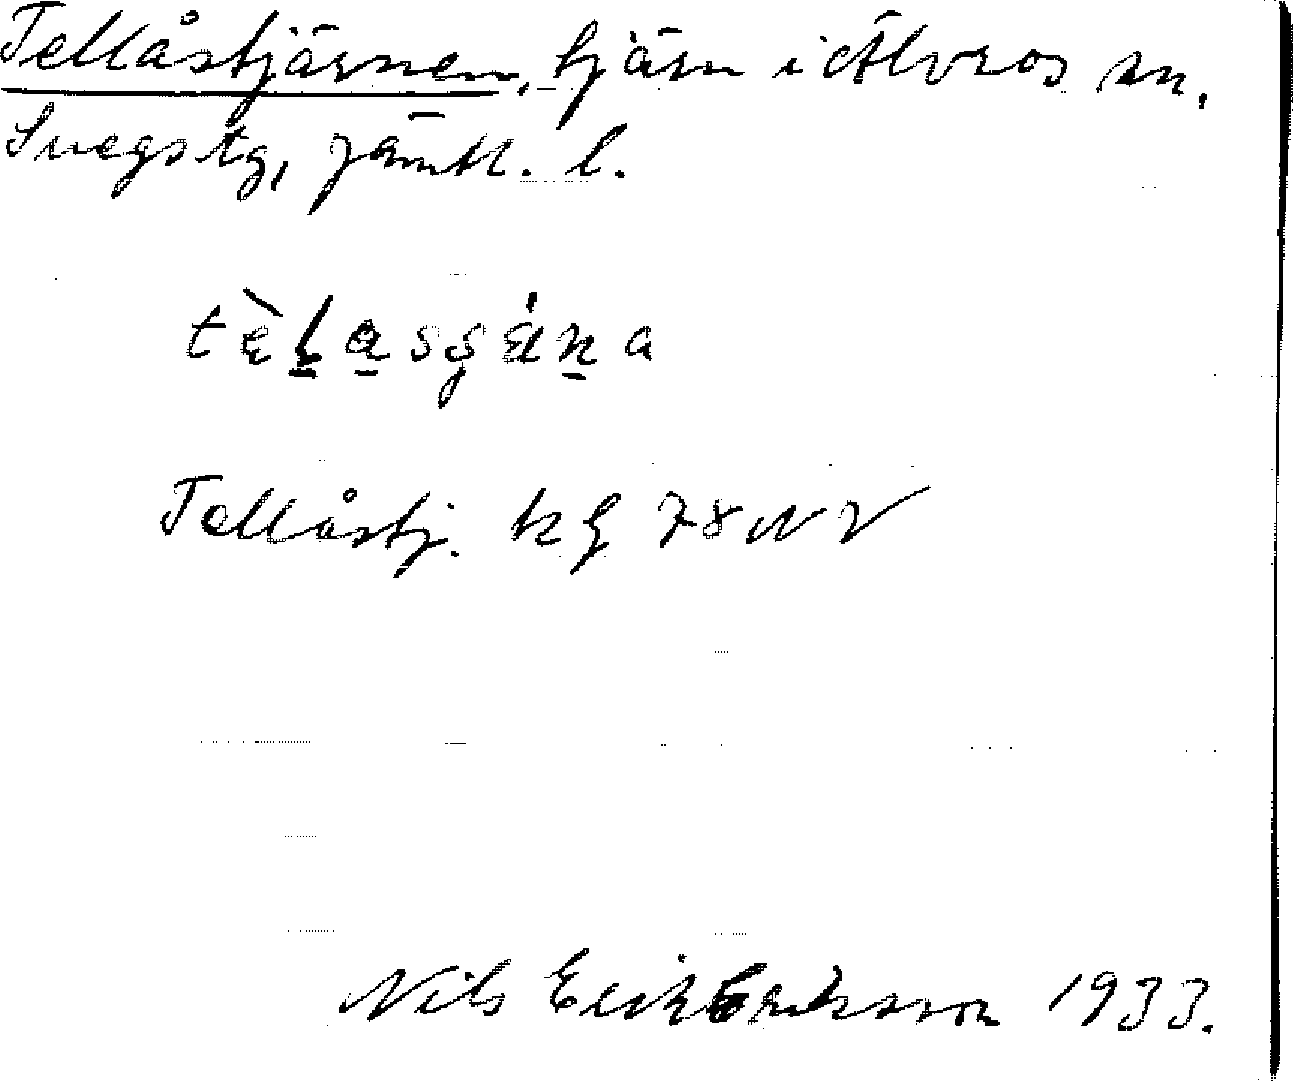 Tellåstjärnen, tjärn i Älvros sn,
Svegs tg, Jämtl. l.
Tellåstj. kg 78 NV
Nils Erik Eriksson 1933.